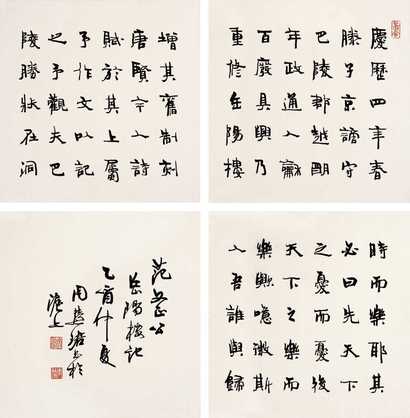 慶歷四年春
滕子京謫守
巴陵郡越明
年政通人龢
百廢具興乃
重修岳陽樓
增其舊制刻
唐賢今人詩
賦於其上屬
予作文以記
之予觀夫巴
陵勝狀在洞
時而樂耶其
必曰先天下
之憂而憂後
天下之樂而
樂歟噫微斯
人吾誰與歸
范文正公
岳陽樓記
乙酉仲夏
周慧珺書於
滬上